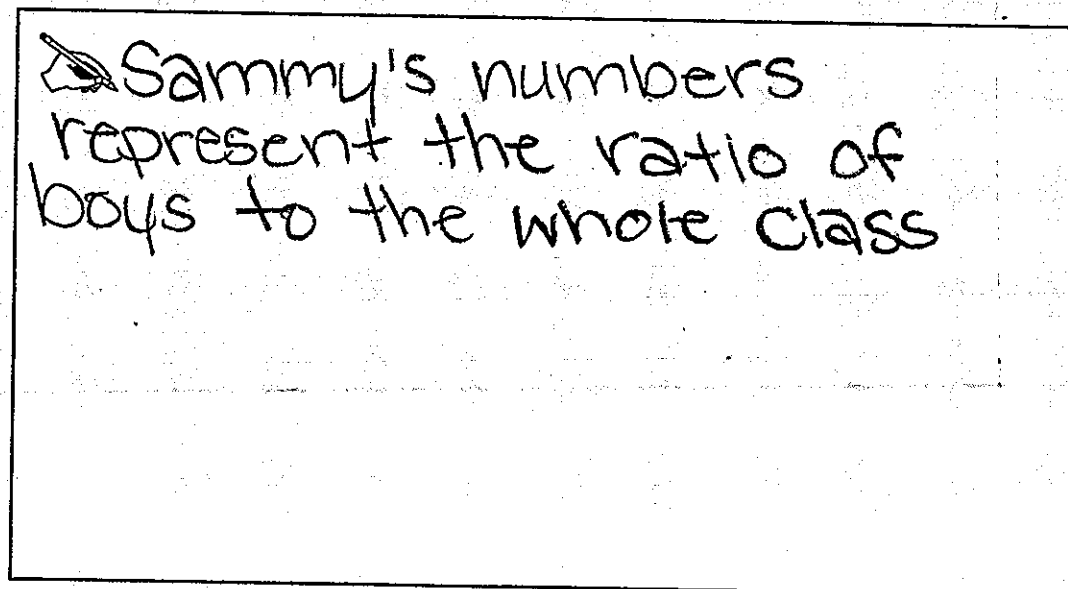 Sammy's numbers
represent the ratio of
boys to the whole class